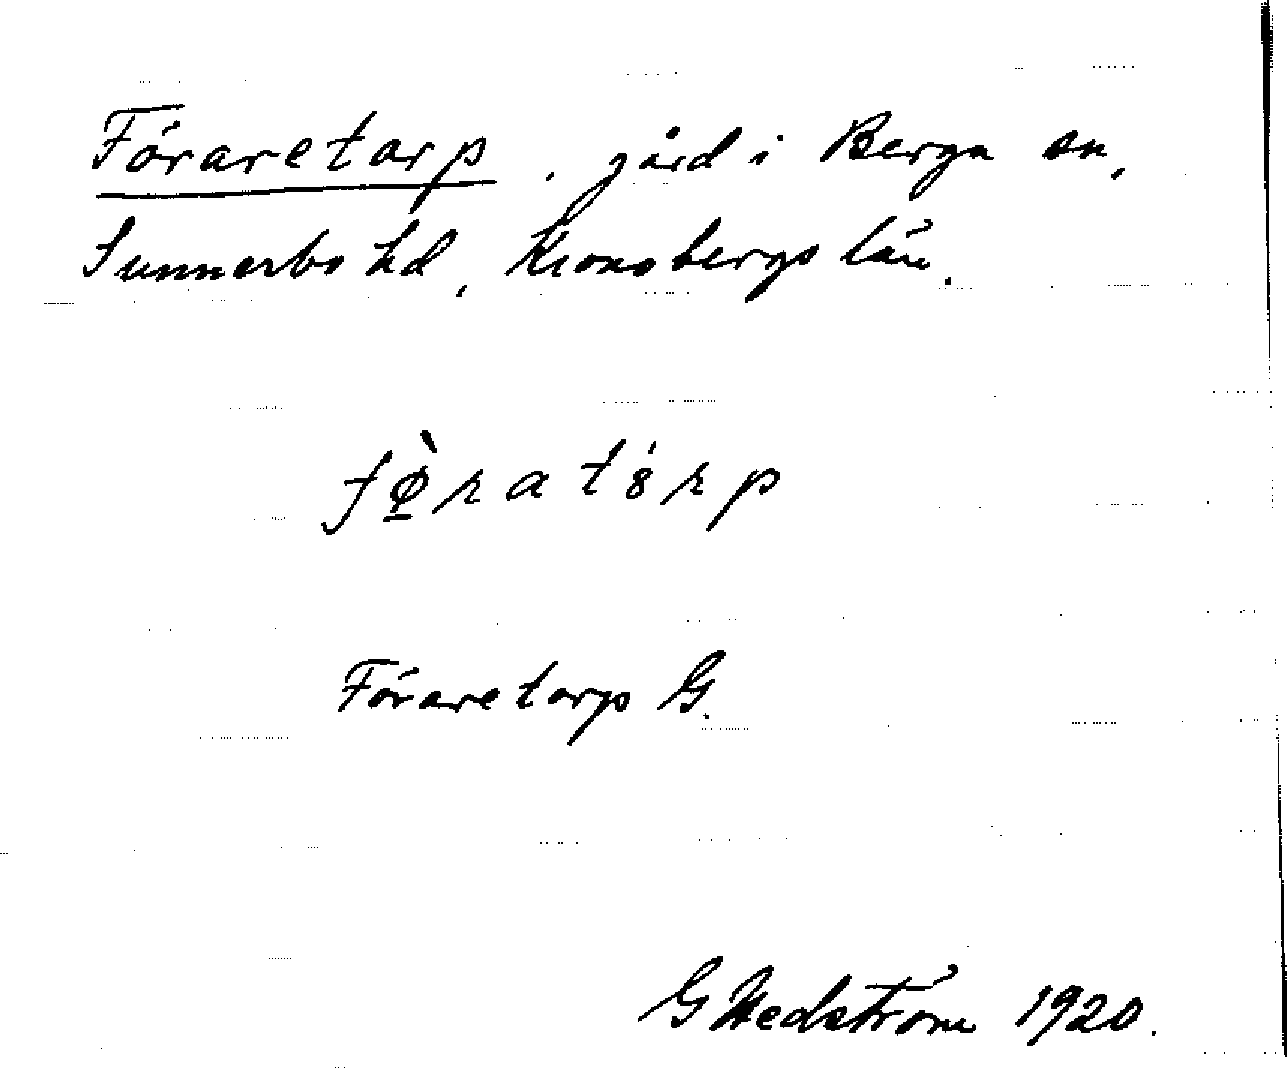 Föraretorp, gård i Berga sn,
Sunnerbo hd, Kronobergs län.
fø̀ratórp
Föraretorp G.
G Hedström 1920.